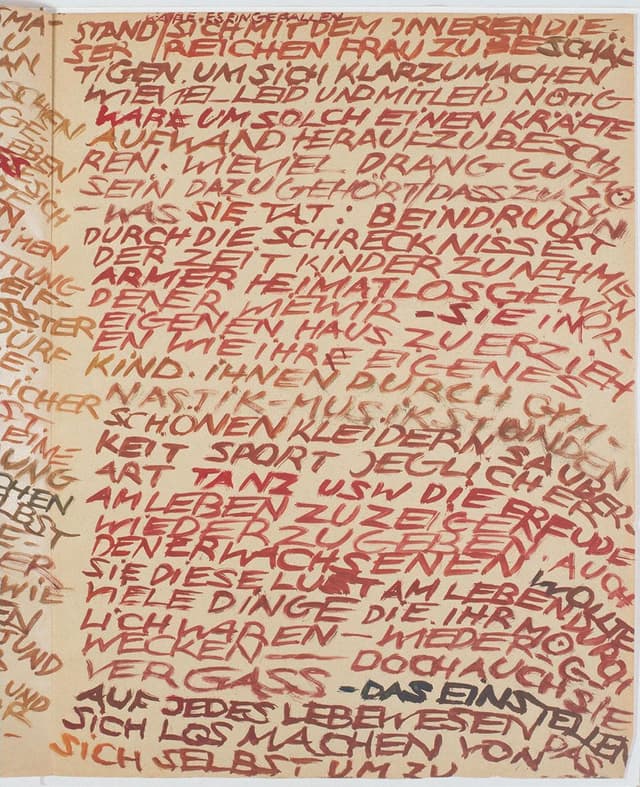 MA-
AU
AN
SCHEN
GE
LEBEN
SICH
N.
MEN
TTUNG
EIF-
SSTER
DÜRF
E.
LICHER
ST
EIME-
UNG
CHEN
LBST
E
ER
WIE
EN
UND
UND
ES EINGEFALLEN
STAND SICH MIT DEM INNEREN DIE
SER REICHEN FRAU ZU BESCHÄF
TIGEN. UM SICH KLARZUMACHEN
WIEVIEL LEID UND MITLEID NÖTIG
WARE UM SOLCH EINEN KRÄFTE
AUFWAND HERAUFZUBESCHWÖ
REN. WIEVIEL DRANG GUT ZU
SEIN DAZU GEHÖRT DASS ZU TUN
- WAS SIE TAT. BEINDRUCKT
DURCH DIE SCHRECKNISSE
DER ZEIT KINDER ZU NEHMEN
ARMER HEIMATLOS GEWOR-
DENER WIE WIR - SIE IN IHR
EIGENEN HAUS ZU ERZIEH
EN WIE IHR EIGENES
KIND. IHNEN DURCH GYM-
NASTIK-MUSIKSTUNDEN
SCHÖNEN KLEIDERN SAUBER-
KEIT SPORT JEGLICHER
ART TANZ USW DIE ERFUDE
AM LEBEN ZU ZEIGEN. AUCH
WIEDER ZU GEBEN.
DEN ERWACHSENEN WOLLTE
SIE DIESE LUST AM LEBEN DURCH
VIELE DINGE DIE IHR MÖG
LICH WAREN - WIEDER
WECKEN - DOCH AUCH SIE
VERGASS
- DAS EINSTELLEN
AUF JEDES LEBEWESEN DAS
SICH LOS MACHEN VON
SICH SELBST UM ZU